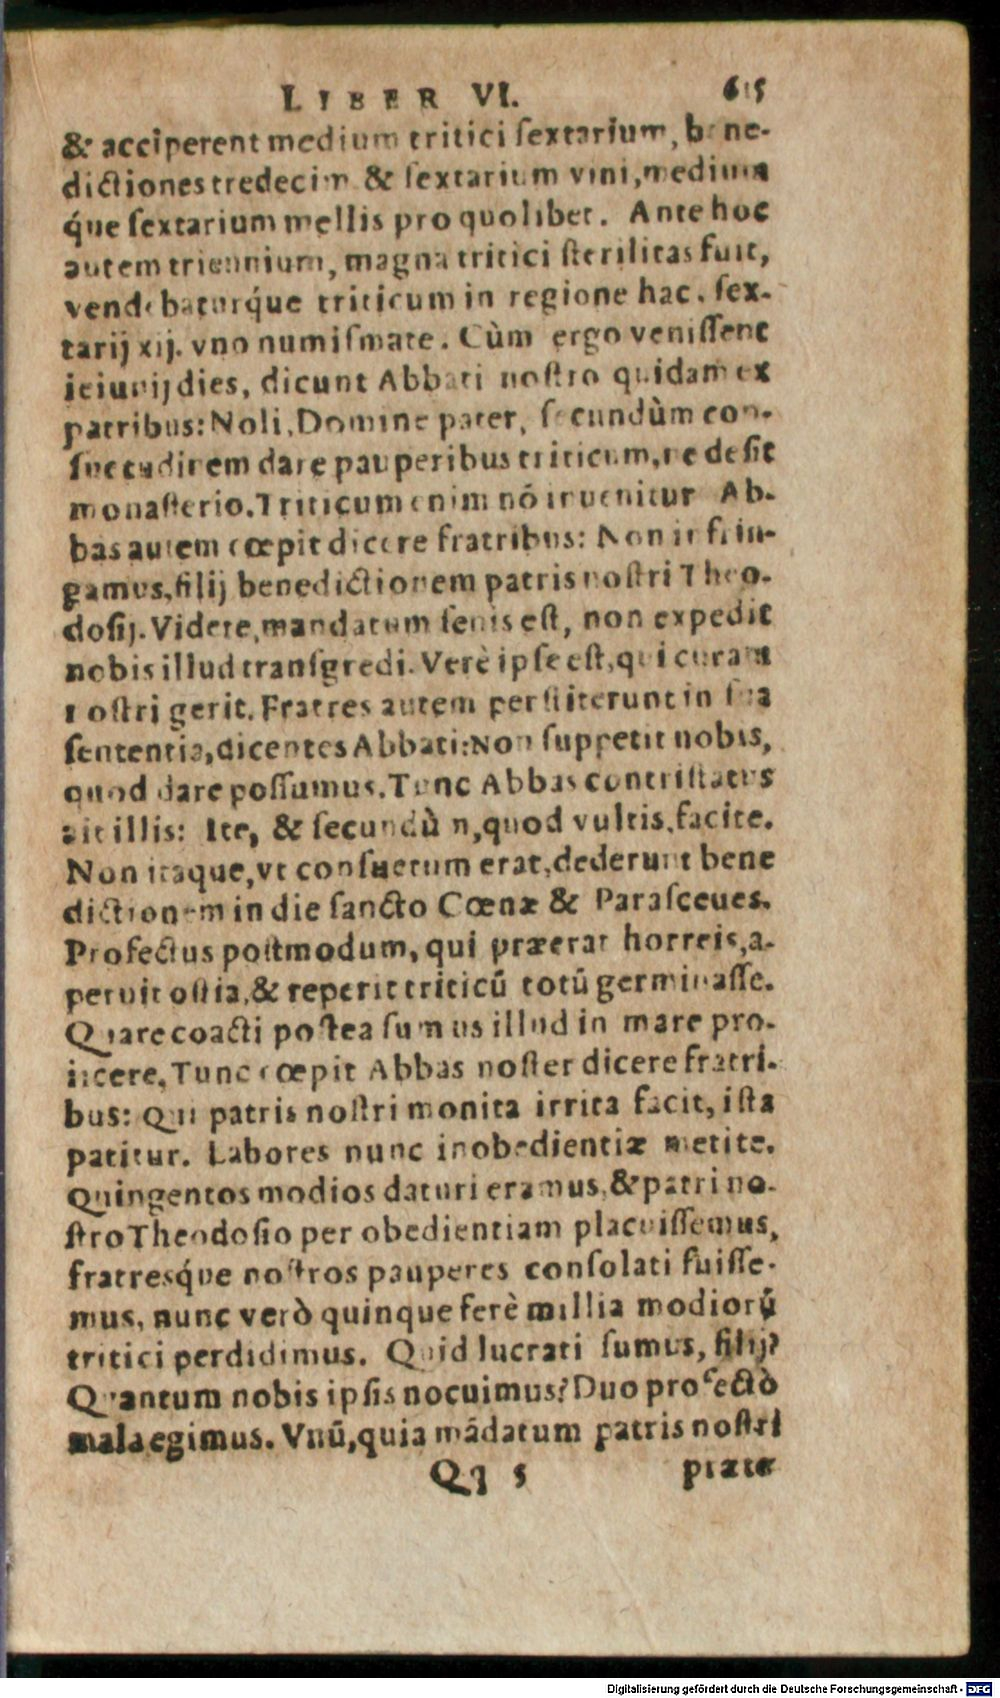 LIBER VI. 615
& acciperent medium tritici ſextarium, bene-
dictiones tredecim & ſextarium vini, medium
q́ue ſextarium mellis pro quolibet. Ante hoc
autem triennium, magna tritici ſterilitas fuit,
vendebaturq́ue triticum in regione hac. ſex-
tarij xij. vno numiſmate. Cùm ergo veniſſent
ieiunij dies, dicunt Abbati noſtro quidam ex
patribus: Noli, Domine pater, ſecundùm con-
ſuetudinem dare pauperibus triticum, ne deſit
monaſterio. Triticum enim nō inuenitur Ab-
bas autem cœpit dicere fratribus: Non infrin-
gamus, filij benedictionem patris noſtri Theo-
doſij. Videte, mandatum ſenis eſt, non expedit
nobis illud tranſgredi. Verè ipſe eſt, qui curam
noſtri gerit. Fratres autem perſtiterunt in ſua
ſententia, dicentes Abbati: Non ſuppetit nobis,
quod dare poſſumus. Tunc Abbas contriſtatus
ait illis: Ite, & ſecundùm, quod vultis, facite.
Non itaque, vt conſuetum erat, dederunt bene
dictionem in die ſancto Cœnæ & Paraſceues.
Profectus poſtmodum, qui præerat horreis, a-
peruit oſtia, & reperit triticū totū germinaſſe.
Quare coacti poſtea ſumus illud in mare pro-
iicere. Tunc cœpit Abbas noſter dicere fratri-
bus: Qui patris noſtri monita irrita facit, iſta
patitur. Labores nunc inobedientiæ metite.
Quingentos modios daturi eramus, & patri no-
ſtro Theodoſio per obedientiam placuiſſemus,
fratresq́ue noſtros pauperes conſolati fuiſſe-
mus, nunc verò quinque ferè millia modiorū
tritici perdidimus. Quid lucrati ſumus, filij?
Quantum nobis ipſis nocuimus? Duo profectò
mala egimus. Vnū, quia mādatum patris noſtri
Qq 5 præte
Digitalisierung gefördert durch die Deutsche Forschungsgemeinschaft - DFG